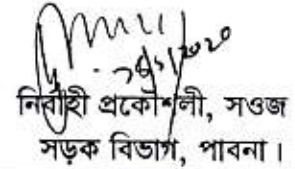 নির্বাহী প্রকৌশলী, সওজ
সড়ক বিভাগ, পাবনা।